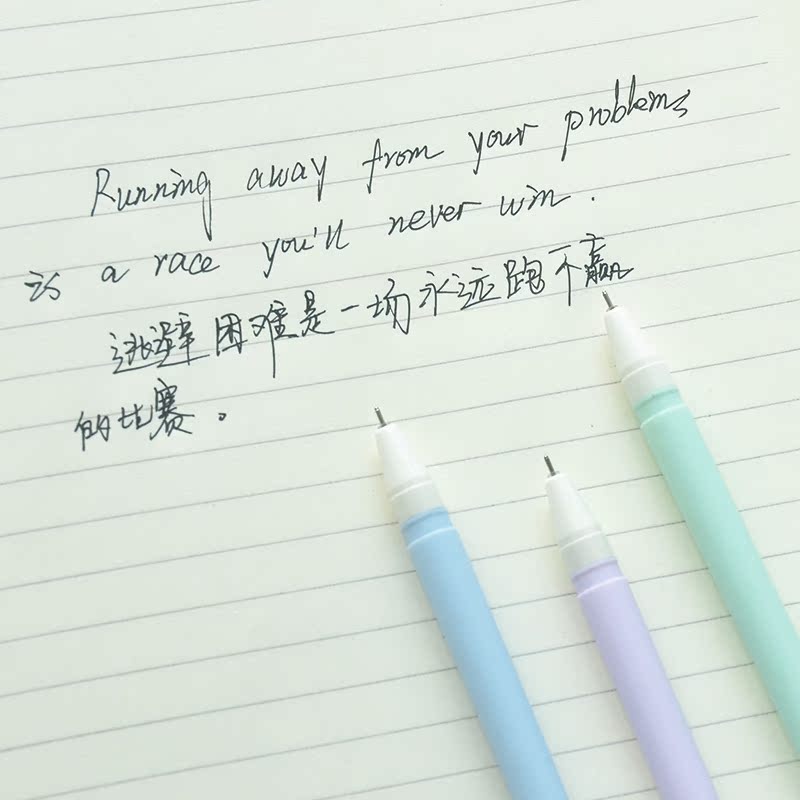 Running away from your problems
is a race you'll never win.
逃避困难是一场永远跑不赢
的比赛。